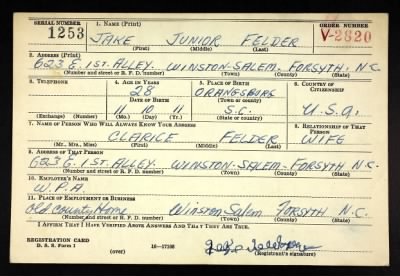 SERIAL NUMBER 1. NAME (Print) ORDER NUMBER
1253 JAKE JUNIOR FELDER V-2820
(First) (Middle) (Last)
2. ADDRESS (Print)
623 E. 1ST. ALLEY. WINSTON-SALEM. FORSYTH. N.C.
(Number and street or R. F. D. number) (Town) (County) (State)
3. TELEPHONE 4. AGE IN YEARS 5. PLACE OF BIRTH 6. COUNTRY OF CITIZENSHIP
28 ORANGSBURG
DATE OF BIRTH (Town or county)
11 10 11 S.C. U.S.A.
(Exchange) (Number) (Mo.) (Day) (Yr.) (State or country)
7. NAME OF PERSON WHO WILL ALWAYS KNOW YOUR ADDRESS 8. RELATIONSHIP OF THAT PERSON
CLARICE FELDER WIFE
(Mr., Mrs., Miss) (First) (Middle) (Last)
9. ADDRESS OF THAT PERSON
623 E. 1ST. ALLEY. WINSTON-SALEM-FORSYTH N.C.
(Number and street or R. F. D. number) (Town) (County) (State)
10. EMPLOYER'S NAME
W.P.A.
11. PLACE OF EMPLOYMENT OR BUSINESS
Old County Home Winston Salem FORSYTH, N.C.
(Number and street or R. F. D. number) (Town) (County) (State)
I AFFIRM THAT I HAVE VERIFIED ABOVE ANSWERS AND THAT THEY ARE TRUE.
REGISTRATION CARD
D. S. S. Form 1 (over) 16-17105 (Registrant's signature)